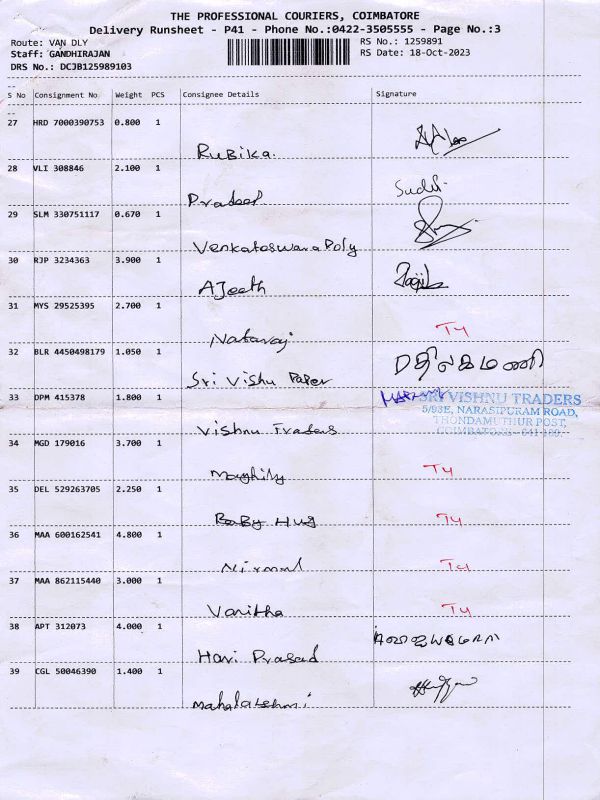 THE PROFESSIONAL COURIERS, COIMBATORE
Delivery Runsheet - P41 - Phone No.:0422-3505555 - Page No.:3
Route: VAN DLY RS No.: 1259891
Staff: GANDHIRAJAN RS Date: 18-Oct-2023
DRS No.: DCJB125989103
S No Consignment No. Weight PCS Consignee Details Signature
27 HRD 7000390753 0.800 1
Rubika.
28 VLI 308846 2.100 1
Pradeep Sudh.
29 SLM 330751117 0.670 1
Venkateswara Poly
30 RJP 3234363 3.900 1
AJeeth
31 MYS 29525395 2.700 1
Nataraj T4
32 BLR 4450498179 1.050 1
Sri Vishu Paper
33 DPM 415378 1.800 1 SRI VISHNU TRADERS
5/93E, NARASIPURAM ROAD,
THONDAMUTHUR POST,
Vishnu Traders COIMBATORE - 641 109.
34 MGD 179016 3.700 1
Maghily T4
35 DEL 529263705 2.250 1
Baby Hug T4
36 MAA 600162541 4.800 1
Nirmal T4
37 MAA 862115440 3.000 1
Vanitha T4
38 APT 312073 4.000 1
Hari Prasad
39 CGL 50046390 1.400 1
Mahalakshmi